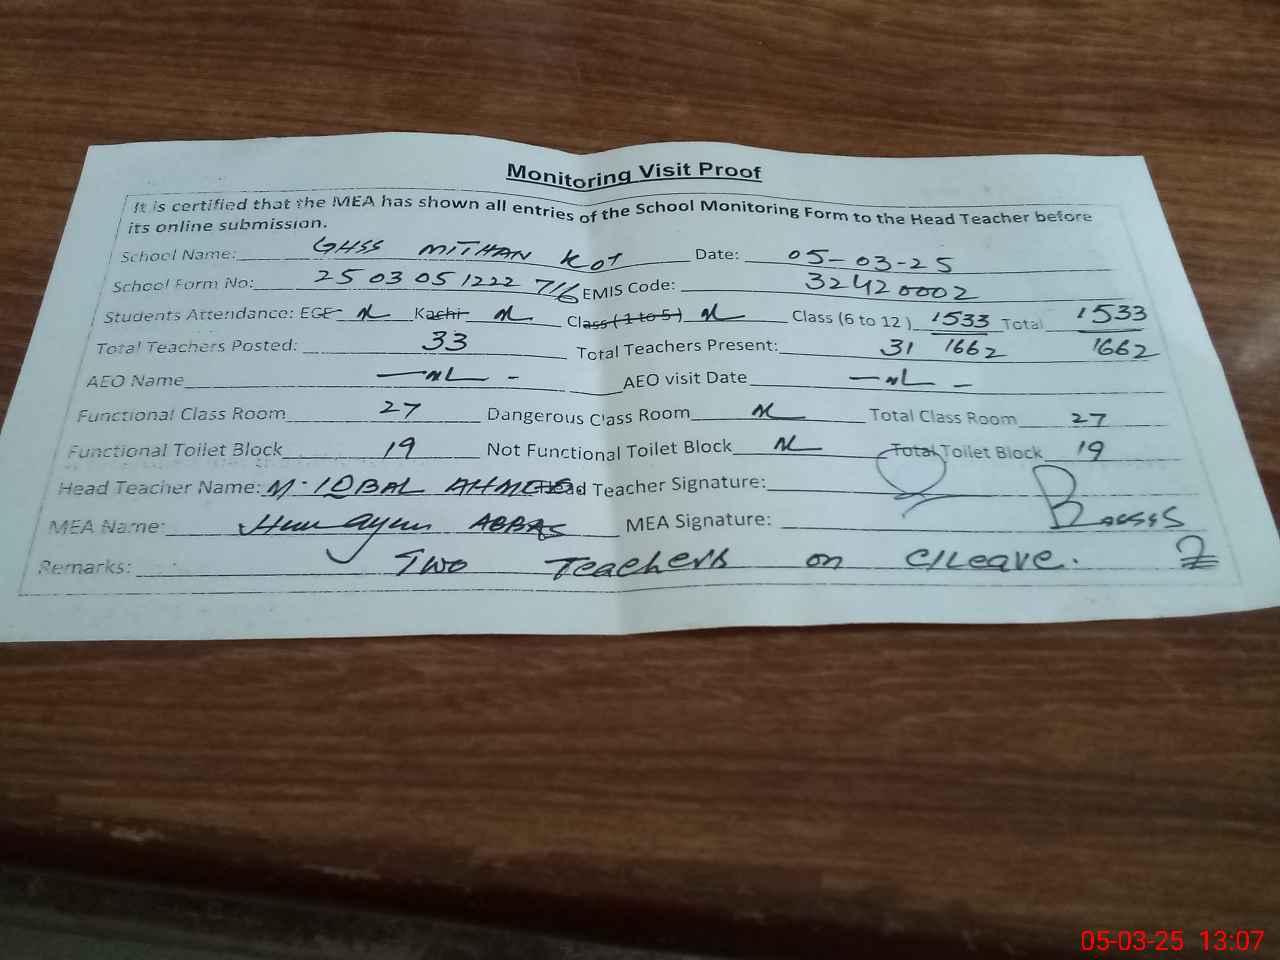 Monitoring Visit Proof
It is certified that the MEA has shown all entries of the School Monitoring Form to the Head Teacher before
its online submission.
School Name: GHSS MITHAN Kot Date: 05-03-25
School Form No: 25 03 05 1222 716 EMIS Code: 32420002
Students Attendance: ECE Kachi Class (1 to 5) Class (6 to 12) 1533/1662 Total 1533/1662
Total Teachers Posted: 33 Total Teachers Present: 31
AEO Name -NL- AEO visit Date -NL-
Functional Class Room 27 Dangerous Class Room Total Class Room 27
Functional Toilet Block 19 Not Functional Toilet Block Total Toilet Block 19
Head Teacher Name: M. IQBAL AHMED Head Teacher Signature:
MEA Name: Humayun ABBAS MEA Signature:
Remarks: Two Teachers on C/Leave.
05-03-25 13:07